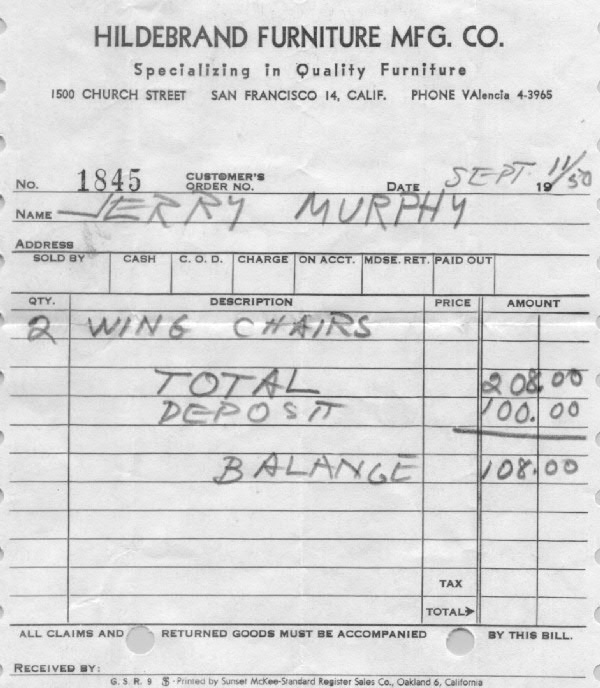 HILDEBRAND FURNITURE MFG. CO.
Specializing in Quality Furniture
1500 CHURCH STREET SAN FRANCISCO 14, CALIF. PHONE VAlencia 4-3965
No. 1845 CUSTOMER'S ORDER NO. DATE SEPT. 11/ 1950
NAME JERRY MURPHY
ADDRESS
SOLD BY CASH C. O. D. CHARGE ON ACCT. MDSE. RET. PAID OUT
QTY. DESCRIPTION PRICE AMOUNT
2 WING CHAIRS
TOTAL 208.00
DEPOSIT 100.00
BALANCE 108.00
TAX
TOTAL
ALL CLAIMS AND RETURNED GOODS MUST BE ACCOMPANIED BY THIS BILL.
RECEIVED BY:
G. S. R. 9 S - Printed by Sunset McKee-Standard Register Sales Co., Oakland 6, California